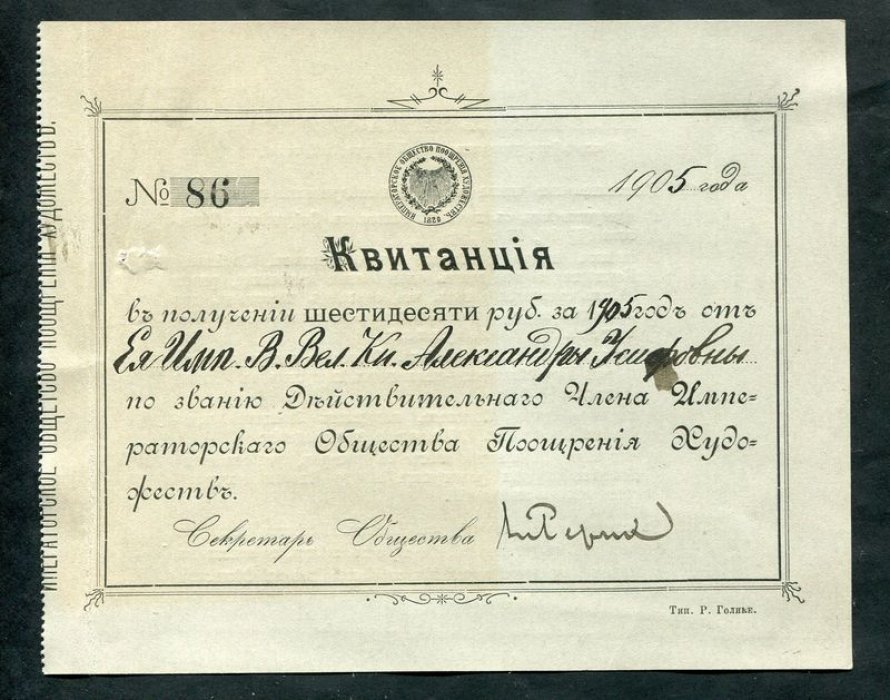 ИМПЕРАТОРСКОЕ ОБЩЕСТВО ПООЩРЕНІЯ ХУДОЖЕСТВЪ.
ИМПЕРАТОРСКОЕ ОБЩЕСТВО ПООЩРЕНІЯ ХУДОЖЕСТВЪ.
1820
№ 86
1905 года
Квитанція
въ полученіи шестидесяти руб. за 1905 годъ отъ
Ея Имп. В. Вел. Кн. Александры Іосифовны
по званію Дѣйствительнаго Члена Импе-
раторскаго Общества Поощренія Худо-
жествъ.
Секретарь Общества Н Рерих
Тип. Р. Голике.